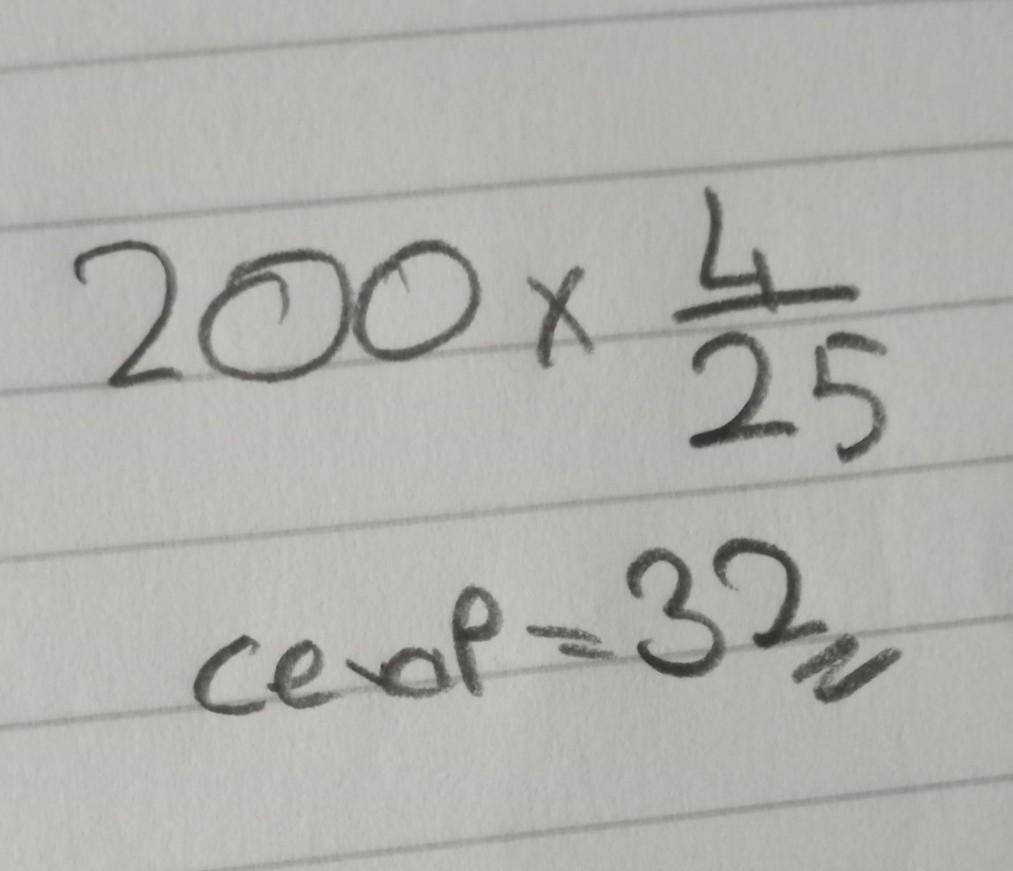 200 x 4/25
cevap = 32